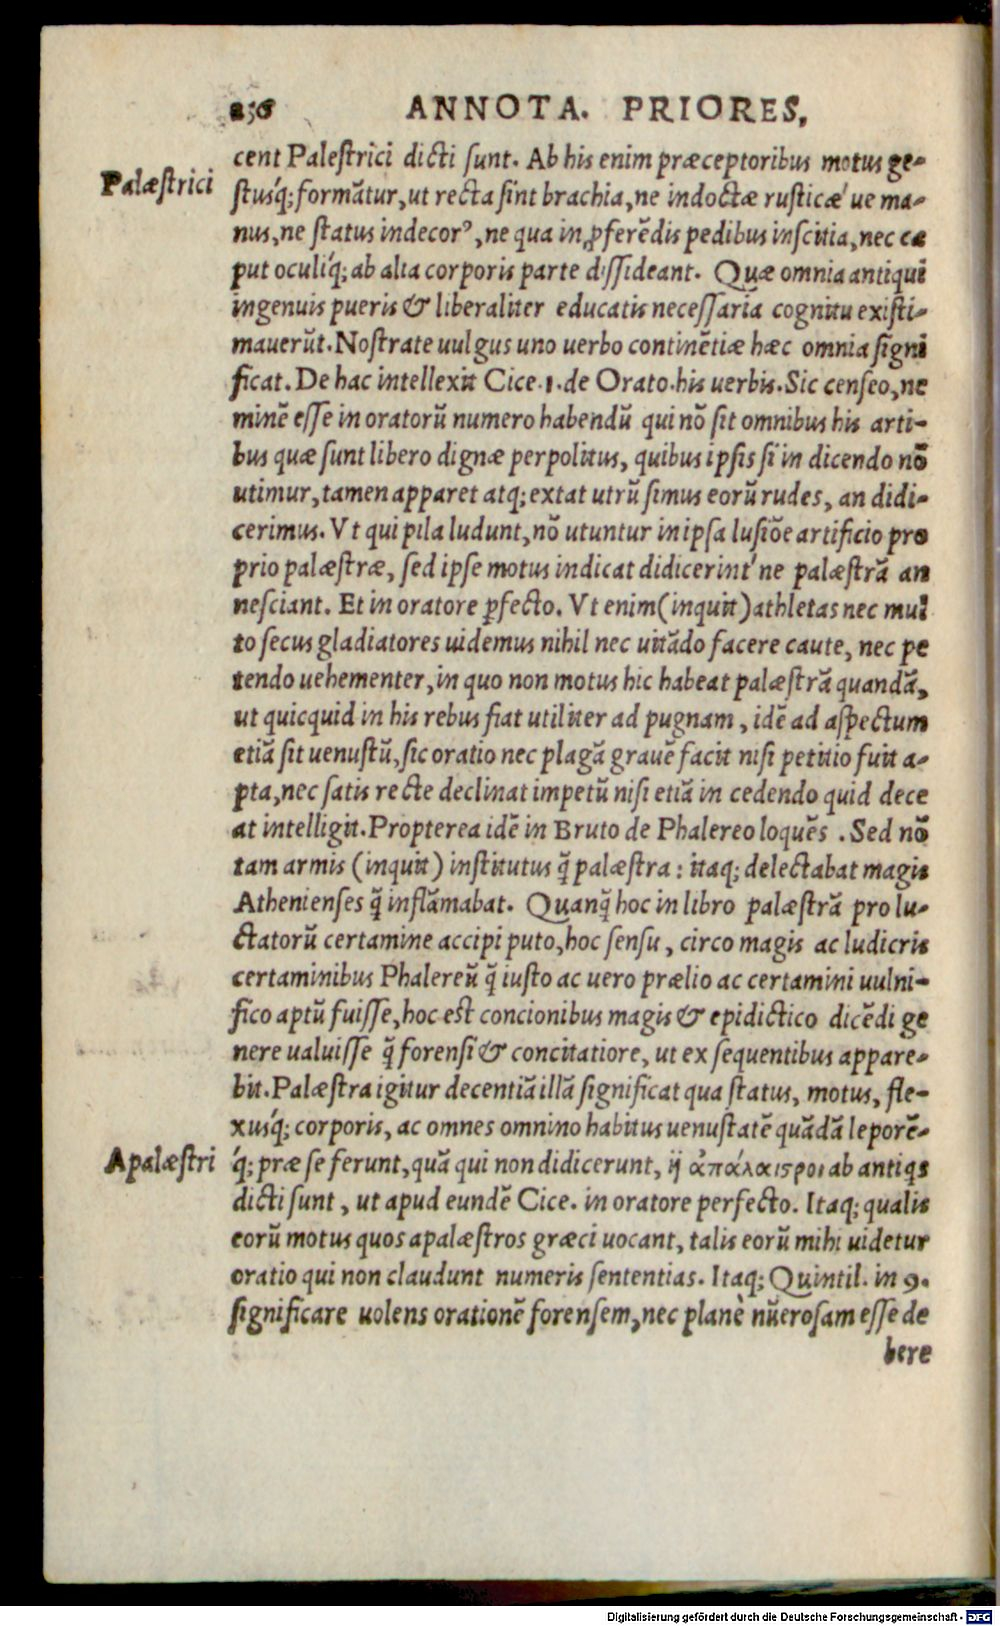 236 ANNOTA. PRIORES,
cent Palestrici dicti sunt. Ab his enim præceptoribus motus ge-
Palæstrici
stusq́; formātur, ut recta sint brachia, ne indoctæ rusticǽ ue ma-
nus, ne status indecorꝰ, ne qua in ꝓferēdis pedibus inscitia, nec ca
put oculiq́; ab alia corporis parte dissideant. Quæ omnia antiqui
ingenuis pueris & liberaliter educatis necessaria cognitu existi-
mauerūt. Nostrate uulgus uno uerbo continētiæ hæc omnia signi
ficat. De hac intellexit Cice. 1. de Orato. his uerbis. Sic censeo, ne
minē esse in oratorū numero habendū qui nō sit omnibus his arti-
bus quæ sunt libero dignæ perpolitus, quibus ipsis si in dicendo nō
utimur, tamen apparet atq; extat utrū simus eorū rudes, an didi-
cerimus. Vt qui pila ludunt, nō utuntur in ipsa lusiōe artificio pro
prio palæstræ, sed ipse motus indicat didicerint́ ne palæstrā an
nesciant. Et in oratore ꝑfecto. Vt enim (inquit) athletas nec mul
to secus gladiatores uidemus nihil nec uitādo facere caute, nec pe
tendo uehementer, in quo non motus hic habeat palæstrā quandā,
ut quicquid in his rebus fiat utiliter ad pugnam, idē ad aspectum
etiā sit uenustū, sic oratio nec plagā grauē facit nisi petitio fuit a-
pta, nec satis recte declinat impetū nisi etiā in cedendo quid dece
at intelligit. Propterea idē in Bruto de Phalereo loquēs. Sed nō
tam armis (inquit) institutus q̄ palæstra: itaq; delectabat magis
Athenienses q̄ inflāmabat. Quanq̄ hoc in libro palæstrā pro lu-
ctatorū certamine accipi puto, hoc sensu, circo magis ac ludicris
certaminibus Phalereū q̄ iusto ac uero prælio ac certamini uulni-
fico aptū fuisse, hoc est concionibus magis & epidictico dicēdi ge
nere ualuisse q̄ forensi & concitatiore, ut ex sequentibus appare-
bit. Palæstra igitur decentiā illā significat qua status, motus, fle-
xusq́; corporis, ac omnes omnino habitus uenustatē quādā leporē-
Apalæstri
q́; præ se ferunt, quā qui non didicerunt, ij ἀπάλαιϛροι ab antiqs
dicti sunt, ut apud eundē Cice. in oratore perfecto. Itaq; qualis
eorū motus quos apalæstros græci uocant, talis eorū mihi uidetur
oratio qui non claudunt numeris sententias. Itaq; Quintil. in 9.
significare uolens orationē forensem, nec planè nūerosam esse de
bere
Digitalisierung gefördert durch die Deutsche Forschungsgemeinschaft - DFG